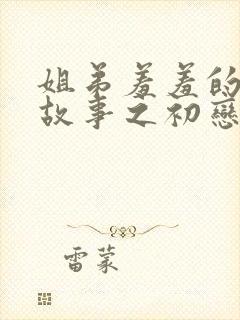 姐弟羞羞的
故事之初戀
雷蒙